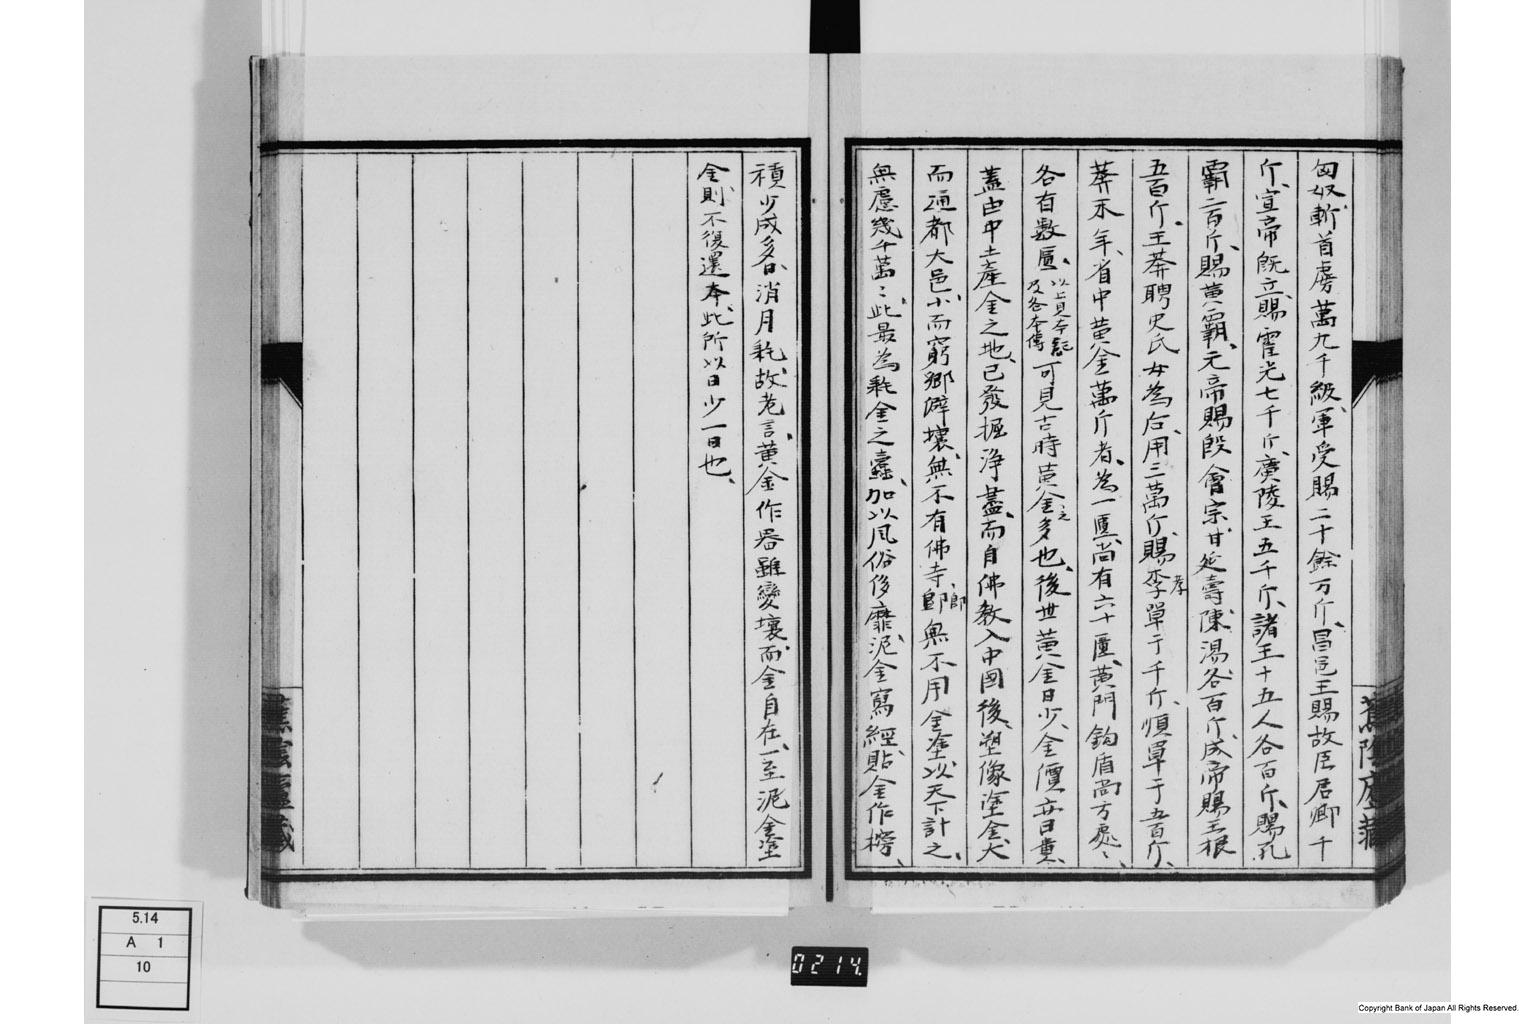 匈奴、斬首虜萬九千級、軍受賜二十餘万斤、昌邑王賜故臣君卿千
斤、宣帝既立、賜霍光七千斤、廣陵王五千斤、諸王十五人各百斤、賜孔
霸二百斤、賜黄霸、元帝賜段會宗、甘延壽、陳湯各百斤、成帝賜王根
五百斤、王莽聘史氏女為后、用三萬斤、賜孝單于千斤、順單于五百斤、
莽末年、省中黄金萬斤者、為一匱、尚有六十匱、黄門鈎盾尚方處〻、
各有數匱、以上見本記及各本傳可見古時黄金之多也、後世黄金日少、金價亦日貴、
蓋由中土產金之地、已發掘浄盡、而自佛教入中國後、塑像塗金、大
而通都大邑、小而窮鄉僻壤、無不有佛寺、即無不用金塗、以天下計之、
無慮幾千萬〻、此最為耗金之蠹、加以風俗侈靡、泥金寫經、貼金作榜、
積少成多、日消月耗、故老言、黄金作器、雖變壞、而金自在、一至泥金塗
金、則不復還本、此所以日少一日也、
5.14
A 1
10
0214.
Copyright Bank of Japan All Rights Reserved.